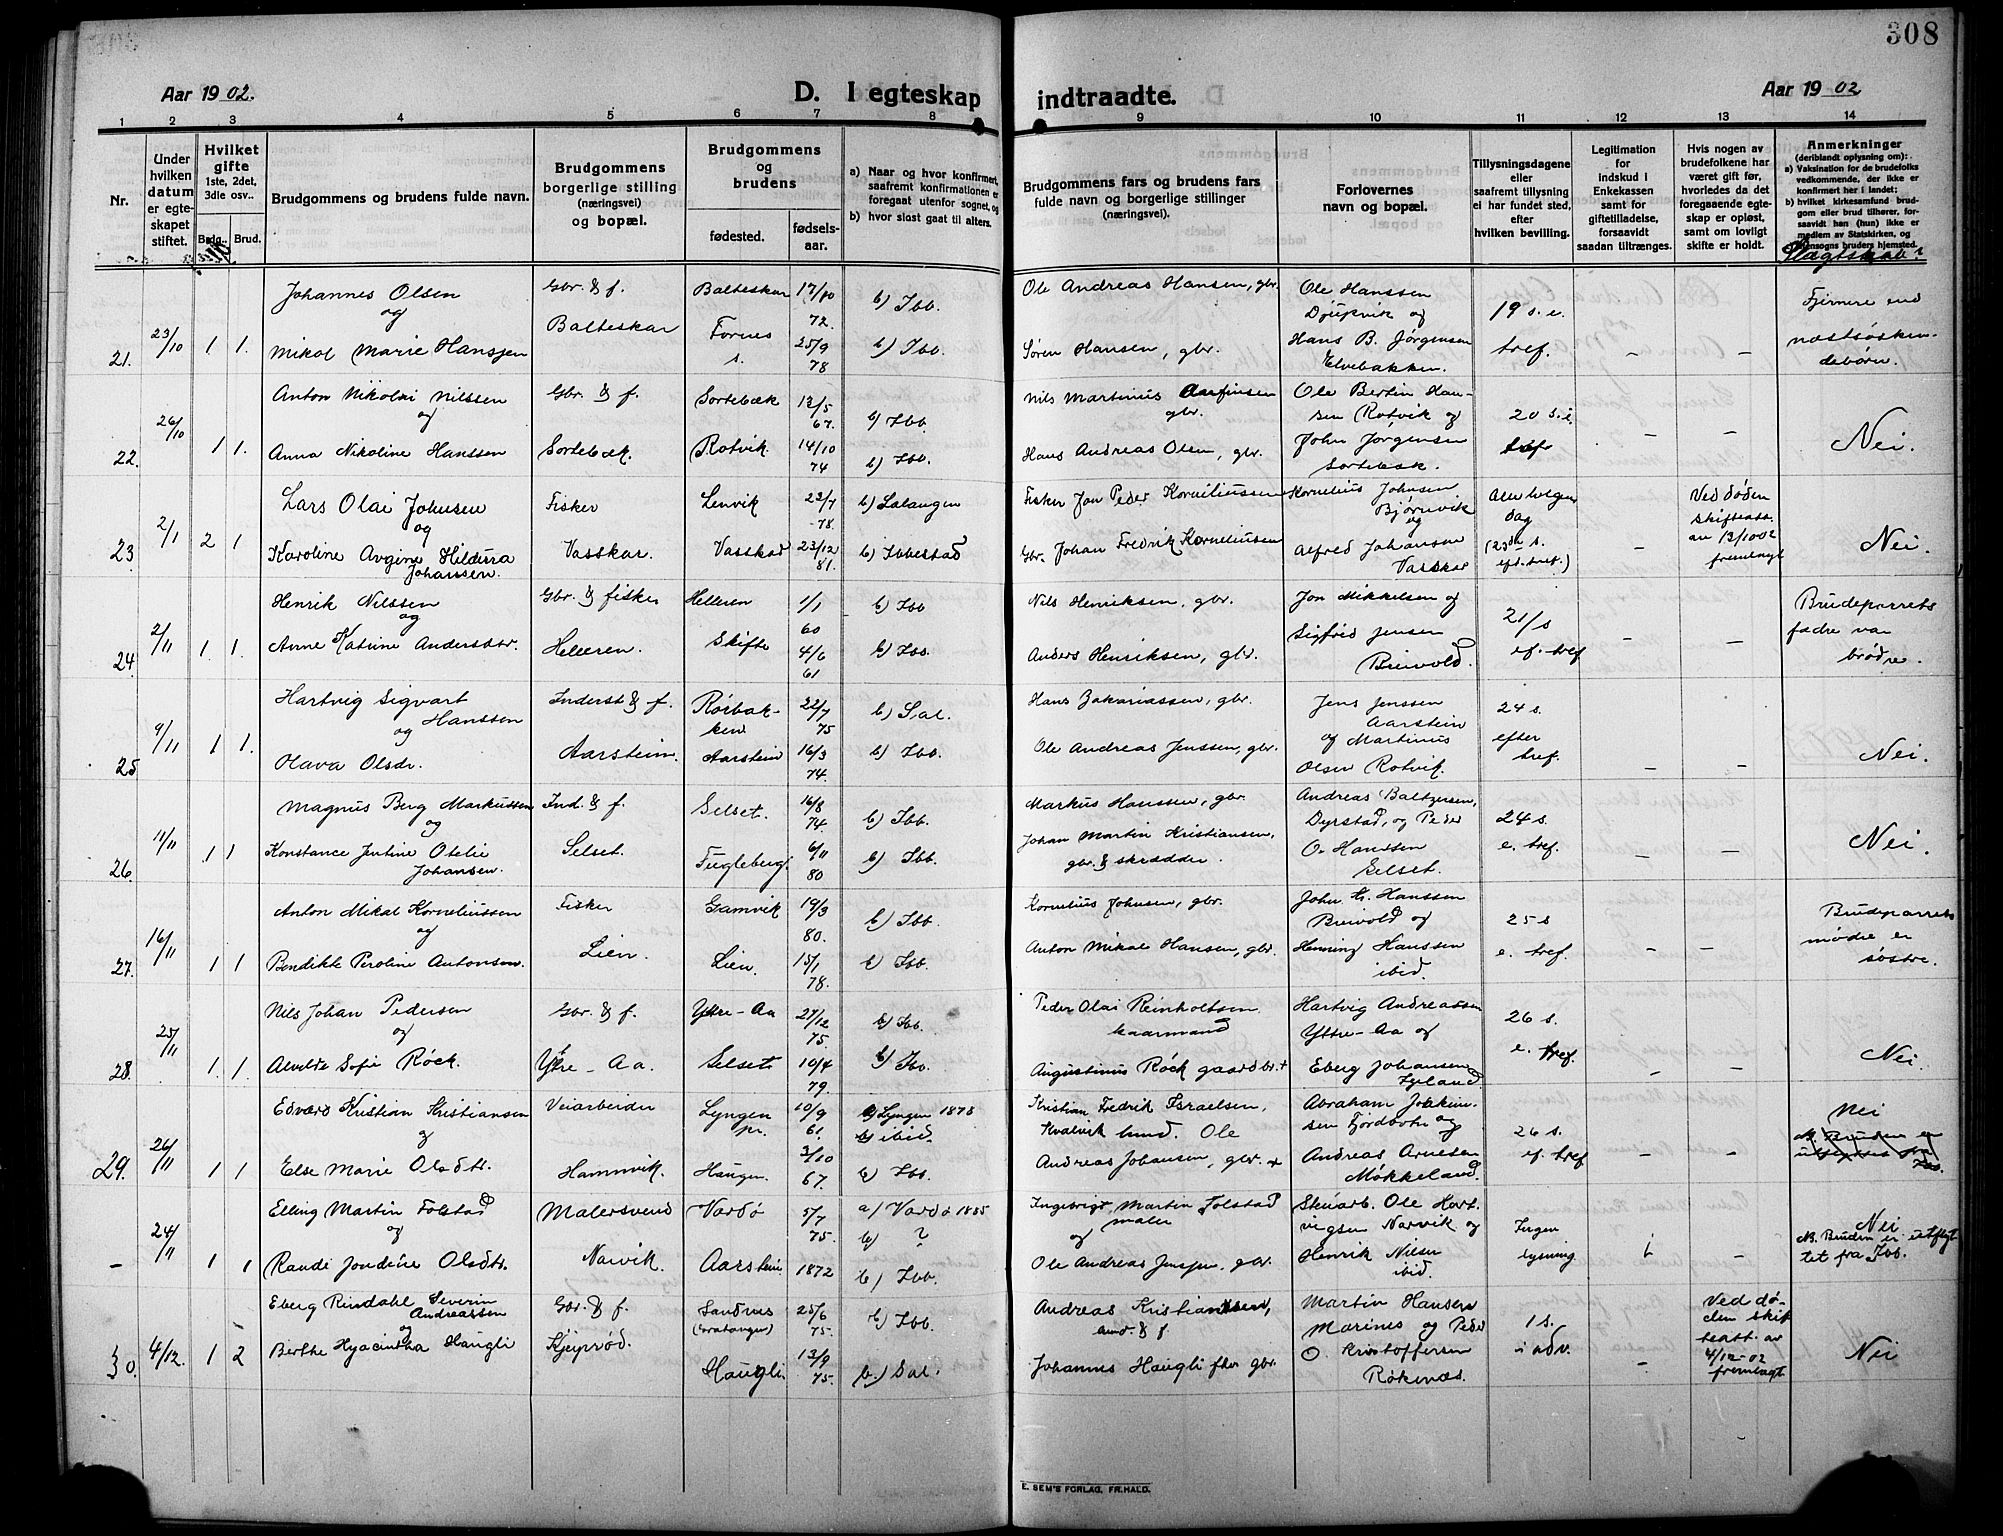 308
Aar 1902.
D. I egteskap
indtraadte.
Aar 1902
1 2 3 4 5 6 7 8 9 10 11 12 13 14
Nr.
Under hvilken datum er egteskapet stiftet.
Hvilket gifte 1ste, 2det, 3die osv..
Brdg.. Brud.
Brudgommens og brudens fulde navn.
Brudgommens borgerlige stilling (næringsvei) og bopæl.
Brudgommens og brudens
fødested.
fødselsaar.
a) Naar og hvor konfirmert, saafremt konfirmationen er foregaat utenfor sognet, og
b) hvor sidst gaat til alters.
Brudgommens fars og brudens fars fulde navn og borgerlige stillinger (næringsvei).
Forlovernes navn og bopæl.
Tillysningsdagene eller saafremt tillysning ei har fundet sted, efter hvilken bevilling.
Legitimation for indskud i Enkekassen samt for giftetilladelse, forsaavidt saadan tiltrænges.
Hvis nogen av brudefolkene har været gift før, hvorledes da det foregaaende egteskap er opløst, samt om lovligt skifte er holdt.
Anmerkninger (deriblandt oplysning om):
a) Vaksination for de brudefolks vedkommende, der ikke er konfirmert her i landet;
b) hvilket kirkesamfund brudgom eller brud tilhører, forsaavidt han (hun) ikke er medlem av Statskirken, og
utensogns bruders hjemsted.
Slægtskab?
21. 23/10 1 1.
Johannes Olsen
og
Mikal Marie Hanssen
Gbr. & f.
Balteskar
Balteskar 17/10 72. b) Ibb.
Fornes s. 25/9 78 b) Ibb.
Ole Andreas Hansen, gbr.
Søren Hansen, gbr.
Ole Hanssen
Djupvik og
Hans B. Jørgensen
Elvebakken.
19 s. e.
tref.
– –
Fjernere end
næstsøsken-
debørn.
22. 26/10 1 1.
Anton Nikolai Nilssen
og
Anna Nikoline Hanssen
Gbr. & f.
Sortebæk.
Sortebæk 12/5 67. b) Ibb.
Rotvik. 14/10 74 b) Ibb.
Nils Martinus Aarfinsen
gbr.
Hans Andreas Olsen, gbr.
Ole Bertin Han-
sen Rotvik og
John Jørgensen
Sortebæk.
20 s. e.
tref
– –
Nei.
23 2/1 2 1
Lars Olai Johnsen
og
Karoline Avgine Hildura
Johansen.
Fisker
Vasskar.
Lenvik 23/7 78. b) Salangen
Vasskar 23/12 81. b) Ibbestad
Fisker Jon Peder Korneliussen
Gbr. Johan Fredrik Korneliussen
Kornelius Johnsen
Bjørnvik
og
Alfred Johansen
Vasskar
Allehelgens
dag
(23de s.
eft. tref.)
–
Ved døden
skifteatt.
av 13/10 02
fremlagt
Nei.
24. 2/11 1 1.
Henrik Nilssen
og
Anne Katrine Andersdtr.
Gbr. & fisker
Helleren.
Helleren 1/1 60 b) Ibb
Skifte 4/6 61 b) Ibb.
Nils Henriksen, gbr.
Anders Henriksen, gbr.
Jon Mikkelsen og
Sigfrid Jensen
Breivold.
21/s
ef. tref
– –
Brudeparrets
fædre var
brødre.
25 9/11 1 1.
Hartvig Sigvart
Hanssen
og
Hava Olsdr.
Inderst & f.
Aarstein.
Rørbak-
ken 22/7 75 b) Sal.
Aarstein 16/3 74. b) Ibb.
Hans Zakariassen, gbr.
Ole Andreas Jenssen, gbr.
Jens Jenssen
Aarstein
og Martinus
Olsen Rotvik.
24 s.
efter
tref.
– –
Nei.
26. 11/11 1 1
Magnus Berg Markussen
og
Konstance Jentine Otelie
Johansen.
Ind. & f.
Selset.
Selset. 16/8 74. b) Ibb.
Fugleberg. 6/11 80 b) Ibb.
Markus Hanssen, gbr.
Johan Martin Kristiansen,
gbr. & skrædder.
Andreas Baltzersen,
Dyrstad, og Peder
O. Hanssen
Selset.
24 s.
e. tref.
– –
Nei.
27. 16/11 1 1
Anton Mikal Korneliussen
og
Bendikte Peroline Antonsen.
Fisker
Lien.
Gamvik 19/3 80. b) Ibb.
Lien. 15/1 78. b) Ibb.
Kornelius Johnsen, gbr.
Anton Mikal Hansen, gbr.
John H. Hanssen
Breivold og
Henning Hanssen
ibid.
25 s
e. tref.
– –
Brudeparrets
mødre er
søstre.
28. 25/11 1. 1.
Nils Johan Pedersen
og
Alvilde Sofie Røck.
Gbr. & f.
Ytre-Aa.
Ytre-Aa 27/12 75. b) Ibb.
Selset 10/4 79. b) Ibb.
Peder Olai Reinholtsen
kaarmand
Augustinus Røck gaardbr. +
Hartvig Andreassen
Ytre-Aa og
Eberg Johansen
26 s.
e. tref.
– –
Nei.
29. 26/11 1 1
Edvard Kristian Kristiansen
og
Else Marie Olsdtr.
Veiarbeider
Hamnvik.
Lyngen
pr. 10/9 61. a) Lyngen 1878
b) ibid.
Haugen. 3/10 67. b) Ibb.
Kristian Fredrik Israelsen,
Kvalvik lund. Ole
Andreas Johansen, gbr. +
Abraham Joakim-
sen Fjordbotn og
Andreas Arnesen
Møkkeland.
26 s.
ef. tref
– –
Nei
– 24/11 1 1
Elling Martin Folstad
og
Randi Jondine Olsdtr.
Malersvend
Narvik.
Vardø 5/7 75. a) Vardø 1885
b) ?
Aarstein 1872 b) Ibb.
Ingebrigt Martin Folstad
maler
og
Ole Andreas Jenssen, gbr.
Skuarb. Ole Hart-
vigsen Narvik og
Henrik Nilsen
ibid.
Ingen
lysning
–
Nei
NB. Bruden er utflyt-
tet fra Ibb.
30. 4/12. 1 2
Eberg Rindahl Severin
Andreassen
og
Berthe Hyacintha Haugli
Gbr. & f.
Kjeiprød.
Sandnes
(Gratangen) 25/6 75. b) Ibb.
Haugli 13/9 75. b.) Sal.
Andreas Kristiansen,
ind. & f.
Johannes Haugli fhen gbr.
Martin Hansen
Marines og Peder
O. Kristoffersen
Røkenæs.
1 s.
i adv.
–
Ved dø-
den skif-
teatt. av
4/12-02
fremlagt
Nei
E. SEM'S FORLAG, FR.HALD.